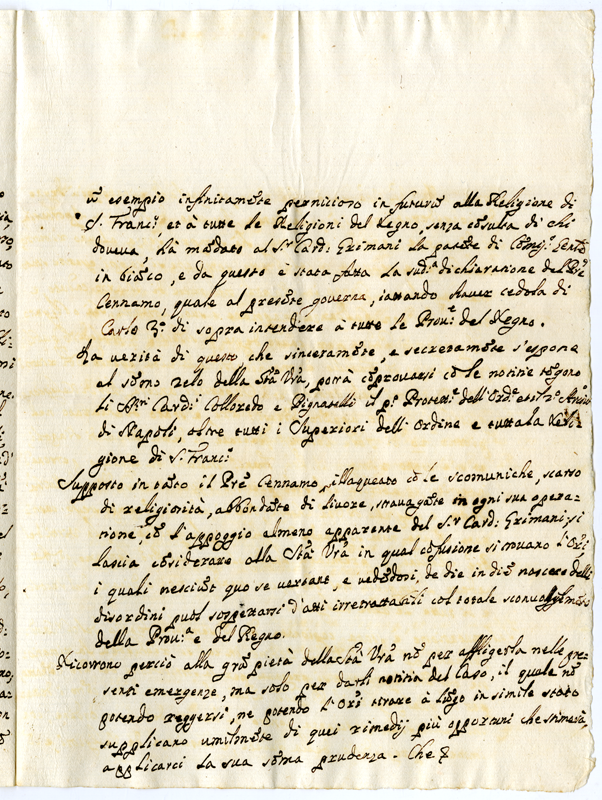 esempio infinitamẽte pernicioso in futurũ alla Religione di
S. Franc.º, et à tutte le Religioni del Regno, senza cõsulta di chi
doveva, hà mãdato al Sʳ Card: Grimani la patẽte di
in biãco, e da questo è stata fatta la sudᵃ dichiarazione del Prẽ
Cennamo, quale al presẽte governa, iattando haver cedola di
Carlo 3º di sopraintendere à tutte le Provᵉ del Regno.
La verità di questo che sinceramẽte, e secretamẽte s'espone
al sõmo zelo della Stà Vrã, potrà cõprovarsi cõ le notizie tẽgono
li Sʳⁱ Cardⁱ Colloredo e Pignatelli il pº Protettᵉ dell'Ordᵉ et il 2º
di Napoli, oltre tutti i Superiori dell'Ordine e tutta la Reli-
gione di S. Franc.º
Supposto in tãto il Prẽ Cennamo, illaqueato cõ le scomuniche, scarso
di religiosità, abbondãte di livore, stravagãte in ogni sua opera-
zione, cõ l'appoggio almeno apparente del Sʳ Card: Grimani, si
lascia cõsiderare alla Stà Vrã in qual cõfusione si trovano l'Orⁱ,
i quali nesciũt quo se vertant, e vedẽdosi, de die in diẽ nascere delli
disordini puol sospettarsi d'atti irretrattabili col totale sconvolgimẽto
della Provᵃ e del Regno.
Ricorrono perciò alla grã pietà della Stà Vrã nõ per affligerla nelle pre-
senti emergenze, ma solo per darli notizia del caso, il quale nõ
potendo reggersi, ne potendo l'Orⁱ tirare à lũgo in simile stato
supplicano umilmẽte di quei rimedij più opportuni che stimarà,
applicarci la sua sõma prudenza. Che